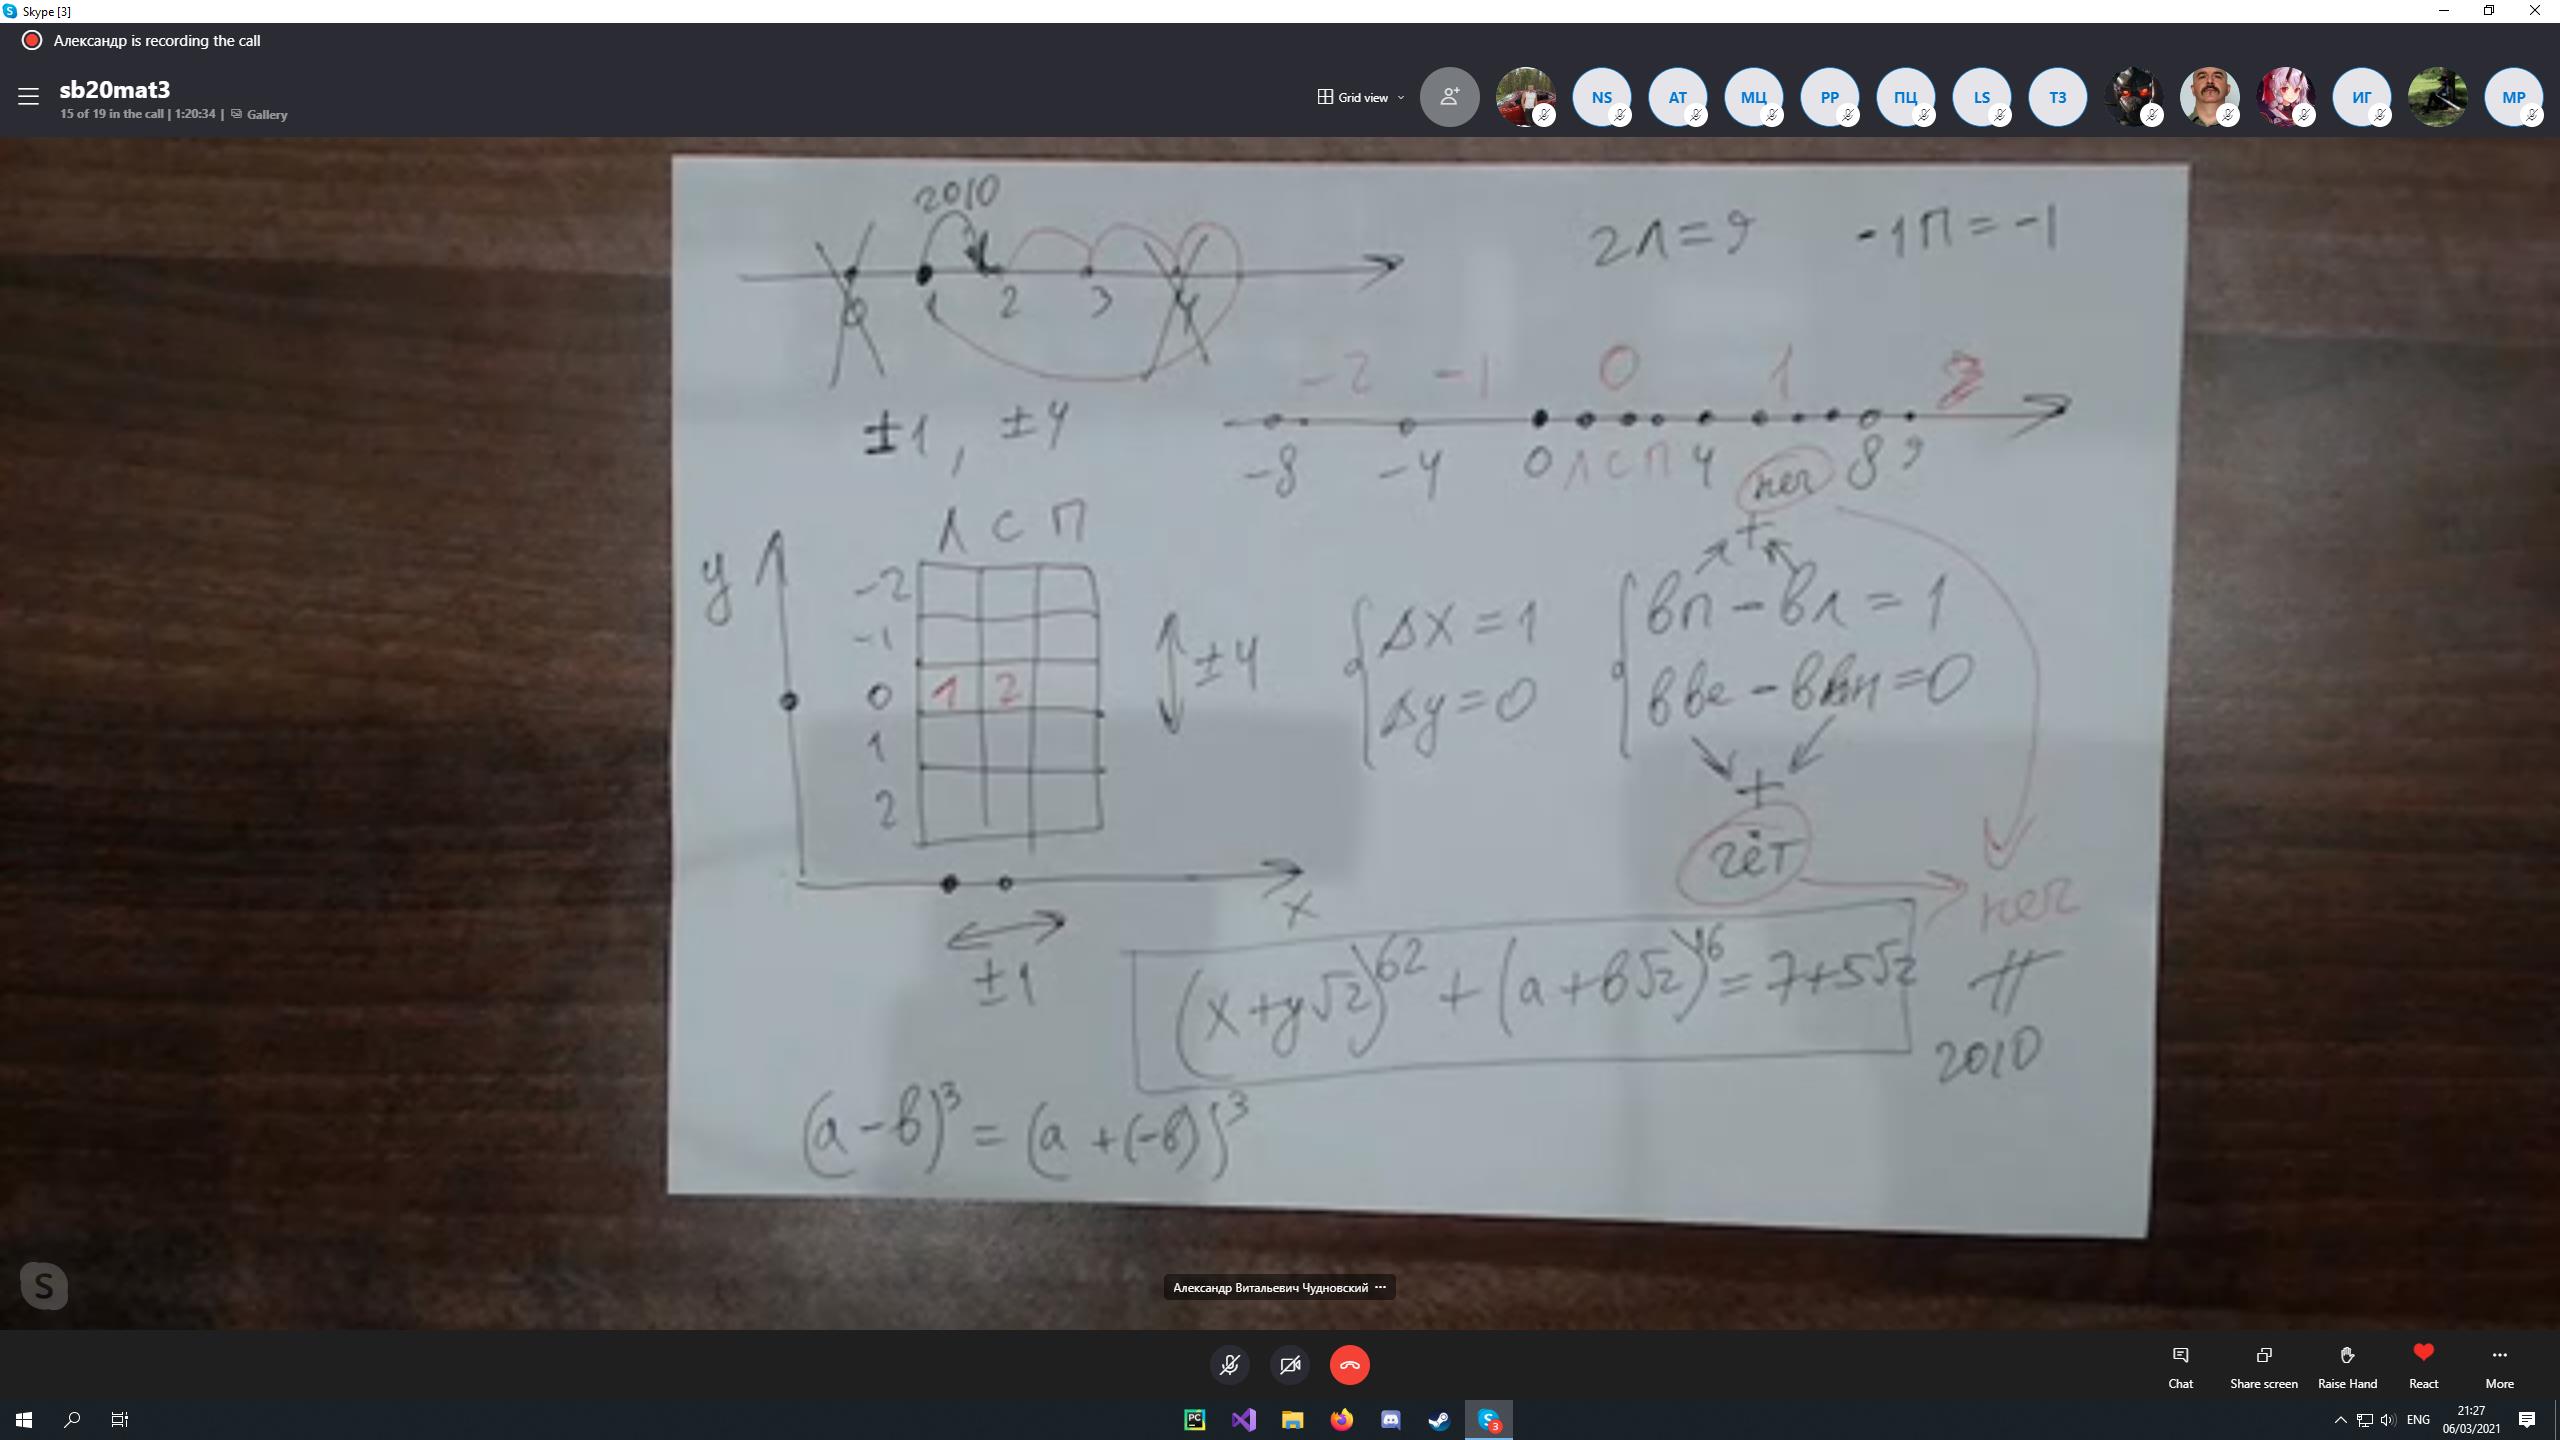 Skype [3]
Александр is recording the call
sb20mat3
15 of 19 in the call | 1:20:34 | Gallery
Grid view
NS
AT
МЦ
PP
ПЦ
LS
ТЗ
ИГ
MP
2010
0 1 2 3 4
2Л=9 -1П=-1
±1, ±4
-2 -1 0 1
-8 -4 0 Л С П 4 неч 8 9
Л С П
y
-2
-1
0 1 2
1
2
±4
Δx=1
Δy=0
+
вп - вл = 1
вве - ввн = 0
+
чёт
неч
x
±1
(x+y√2)^62 + (a+в√2)^16 = 7+5√2
≠
2010
(a-в)^3 = (a+(-в))^3
S
Александр Витальевич Чудновский
Chat
Share screen
Raise Hand
React
More
PC
S 3
ENG
21:27
06/03/2021